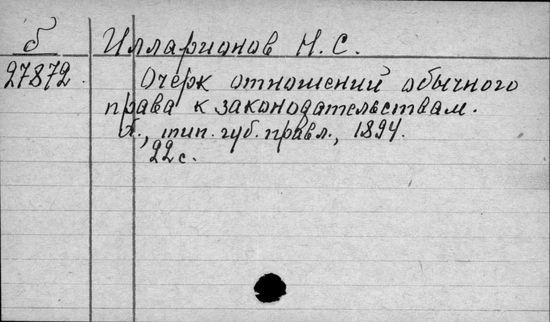 б Илларионов Н. С.
27872. Очерк отношений обычного
права к законодательствам.
Х., тип. губ. правл., 1894.
22 с.